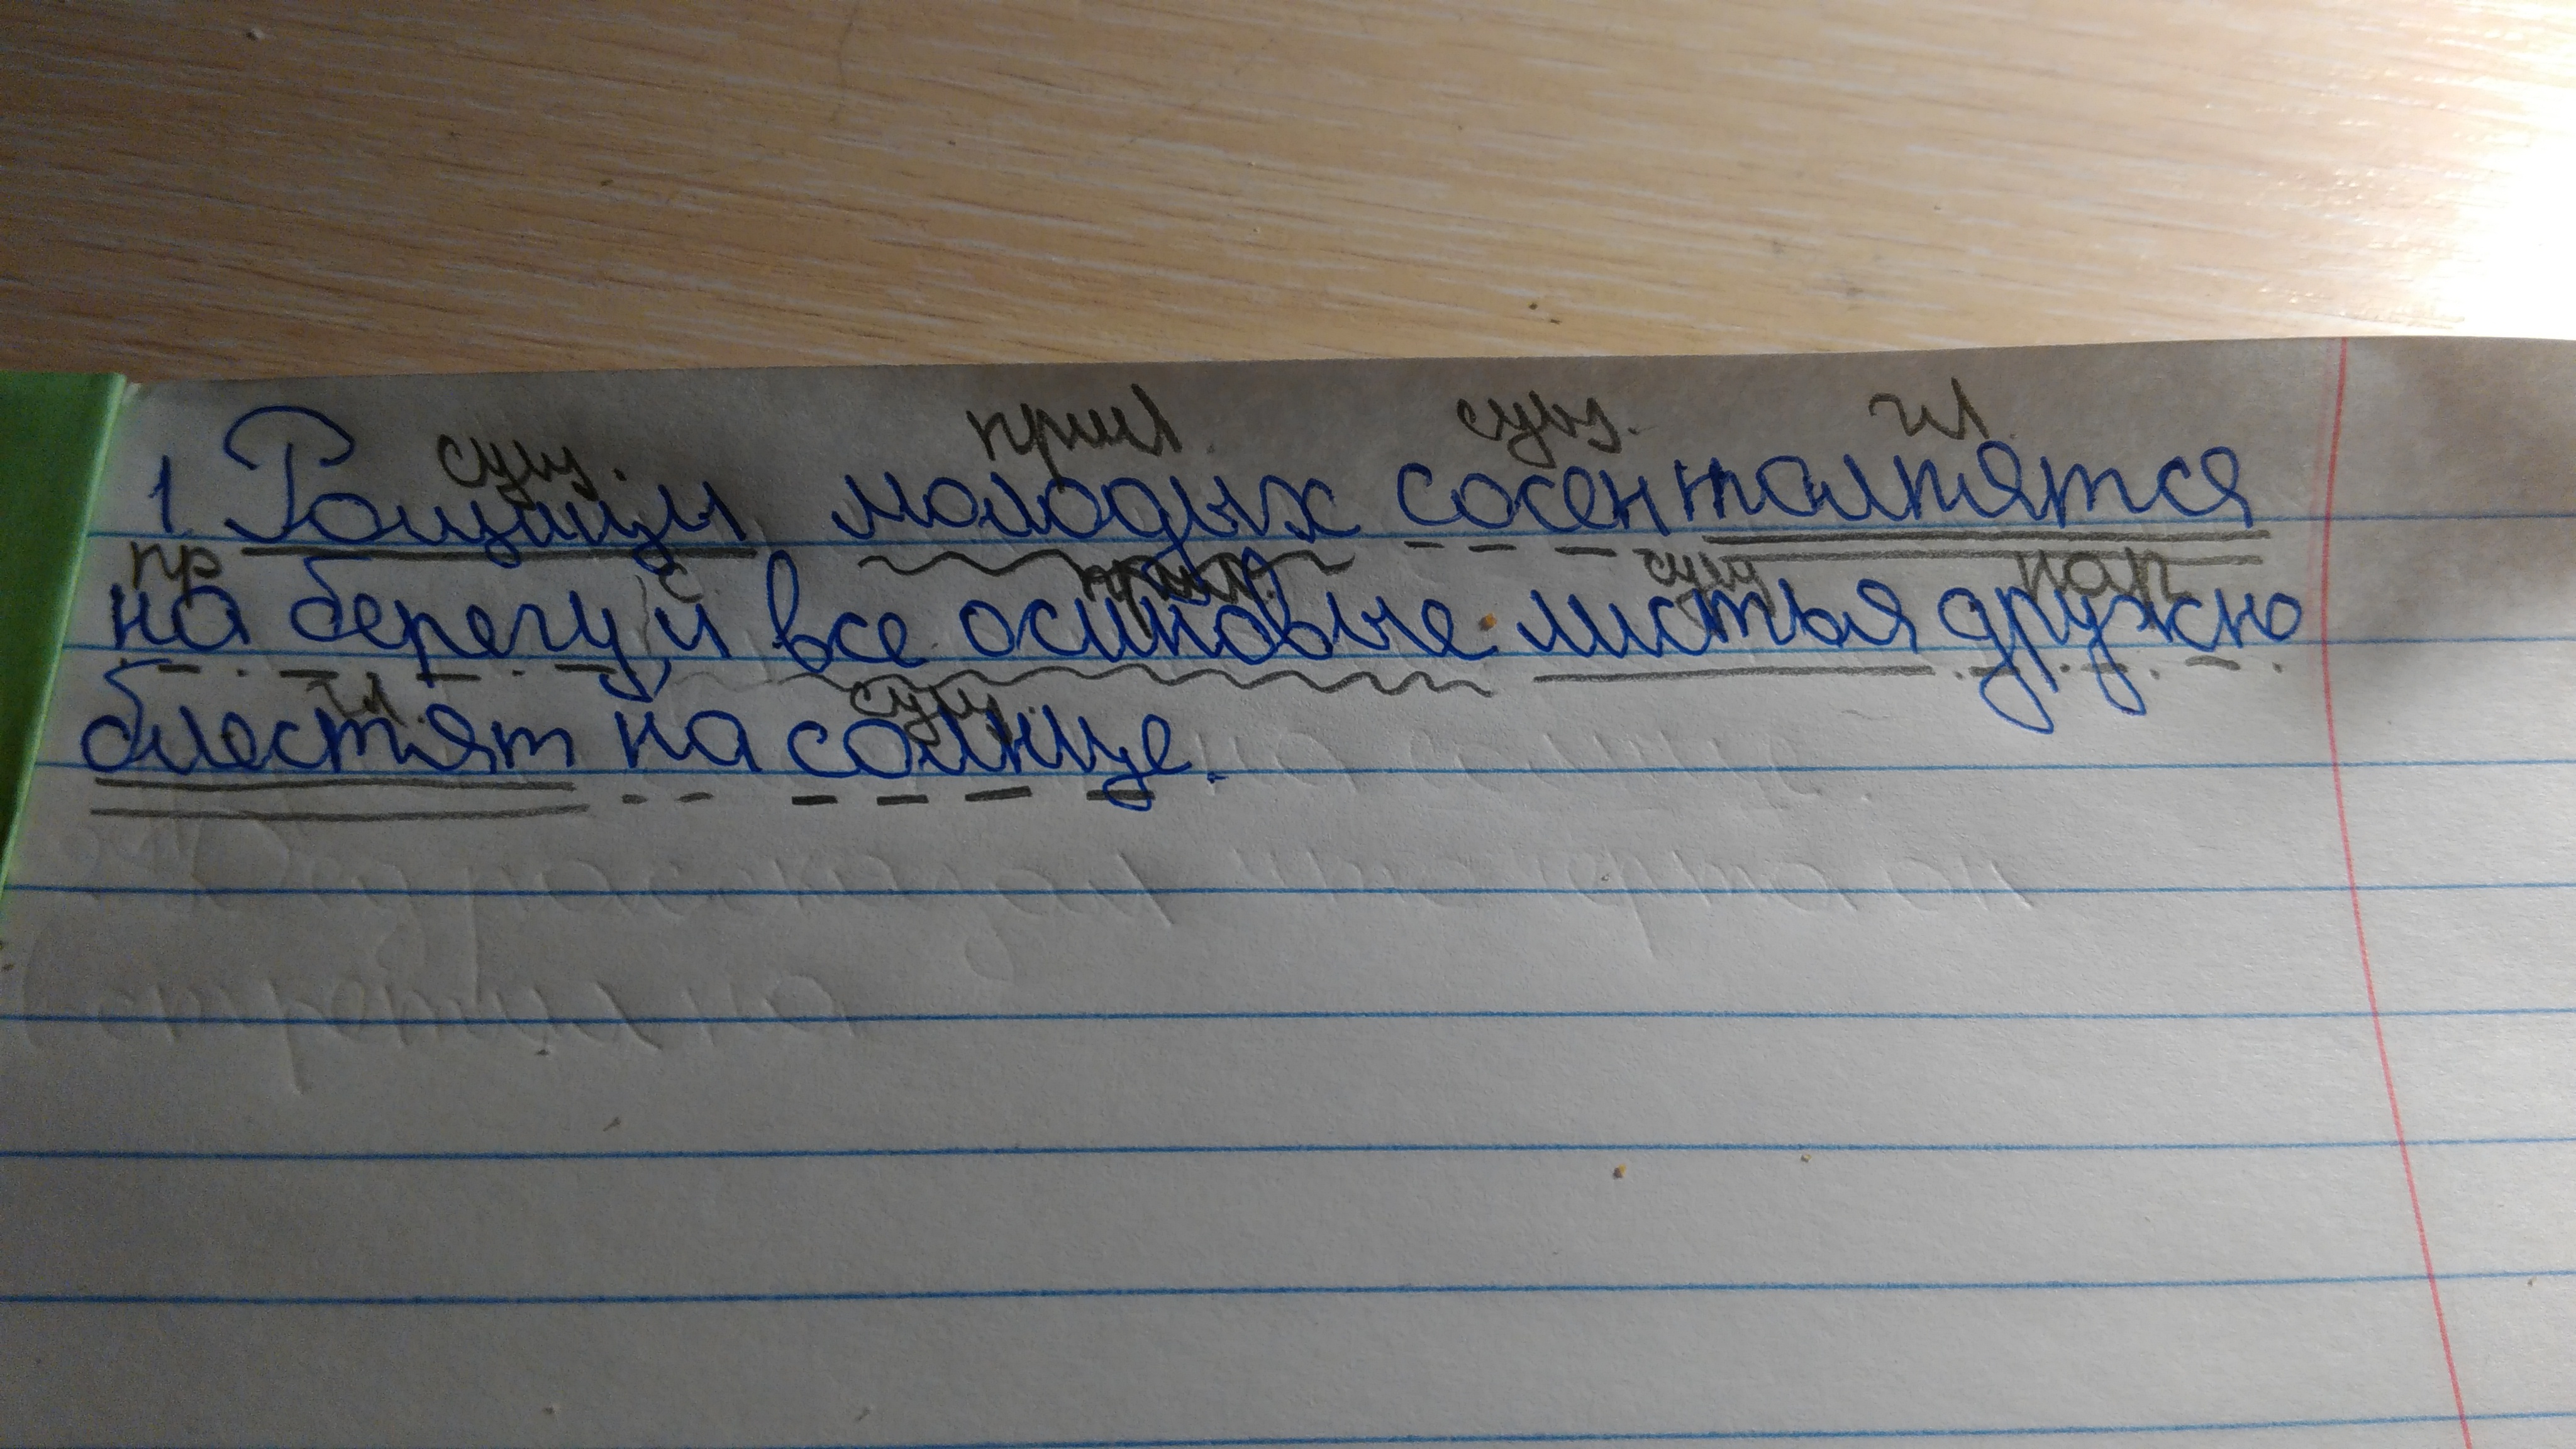 сущ. прил. сущ. гл.
1. Рощицы молодых сосен толпятся
пр с. прил. сущ нар
на берегу, и все осиновые листья дружно
гл. сущ.
блестят на солнце.